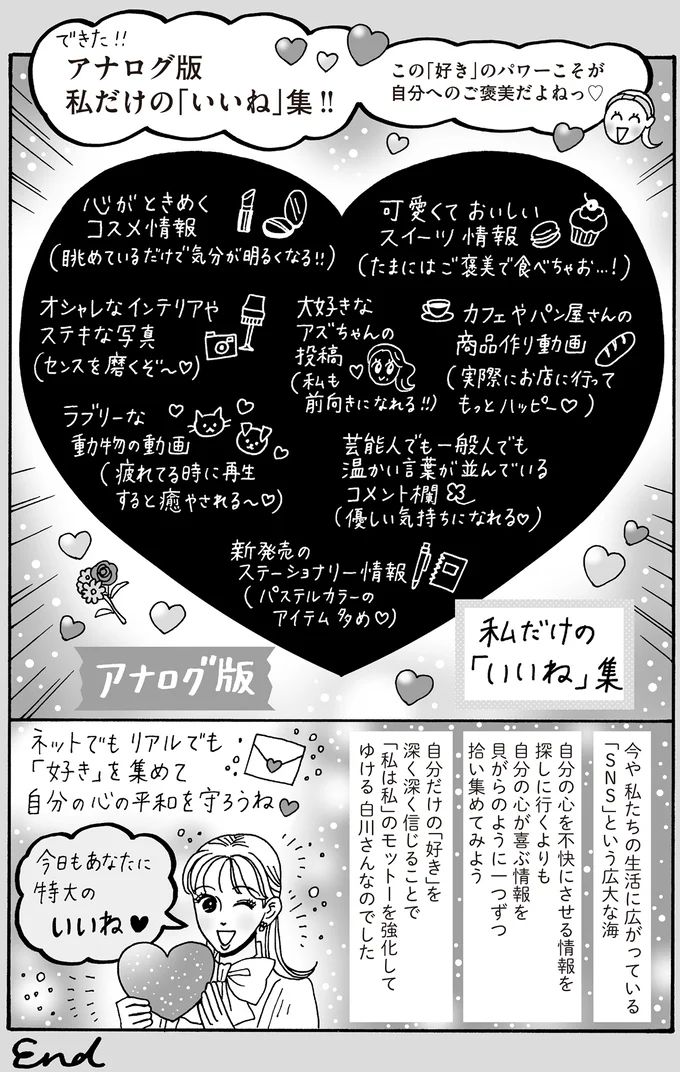 できた!!
アナログ版
私だけの「いいね」集!!
この「好き」のパワーこそが
自分へのご褒美だよねっ♡
心がときめく
コスメ情報
(眺めているだけで気分が明るくなる!!)
可愛くておいしい
スイーツ情報
(たまにはご褒美で食べちゃお…!)
オシャレなインテリアや
ステキな写真
(センスを磨くぞ〜♡)
大好きな
アズちゃんの
投稿
(私も
前向きになれる!!)
カフェやパン屋さんの
商品作り動画
(実際にお店に行って
もっとハッピー♡)
ラブリーな
動物の動画
(疲れてる時に再生
すると癒やされる〜♡)
芸能人でも一般人でも
温かい言葉が並んでいる
コメント欄
(優しい気持ちになれる♡)
新発売の
ステーショナリー情報
(パステルカラーの
アイテム多め♡)
アナログ版
私だけの
「いいね」集
今や私たちの生活に広がっている
「SNS」という広大な海
自分の心を不快にさせる情報を
探しに行くよりも
自分の心が喜ぶ情報を
貝がらのように一つずつ
拾い集めてみよう
自分だけの「好き」を
深く深く信じることで
「私は私」のモットーを強化して
ゆける白川さんなのでした
ネットでもリアルでも
「好き」を集めて
自分の心の平和を守ろうね♥
今日もあなたに
特大の
いいね♥
End